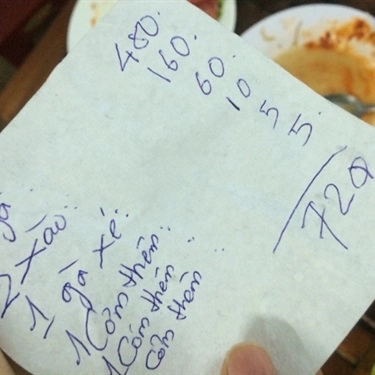 gà: 480.
2 xào: 160.
1 gà xé: 60.
1 Cơm thêm: 10
1 Cơm thêm: 5
Cơm thêm 5.
720